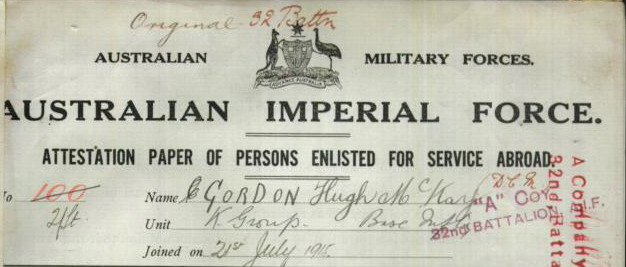 Original 32 Battn
AUSTRALIAN MILITARY FORCES.
ADVANCE AUSTRALIA
AUSTRALIAN IMPERIAL FORCE.
ATTESTATION PAPER OF PERSONS ENLISTED FOR SERVICE ABROAD.
No 100
Name GORDON Hugh McKay D.C.M
2/Lt.
Unit K Group. Base Inf
Joined on 21st July 1915.
"A" COY A.I.F.
32nd BATTALION
A Company
32nd Batta